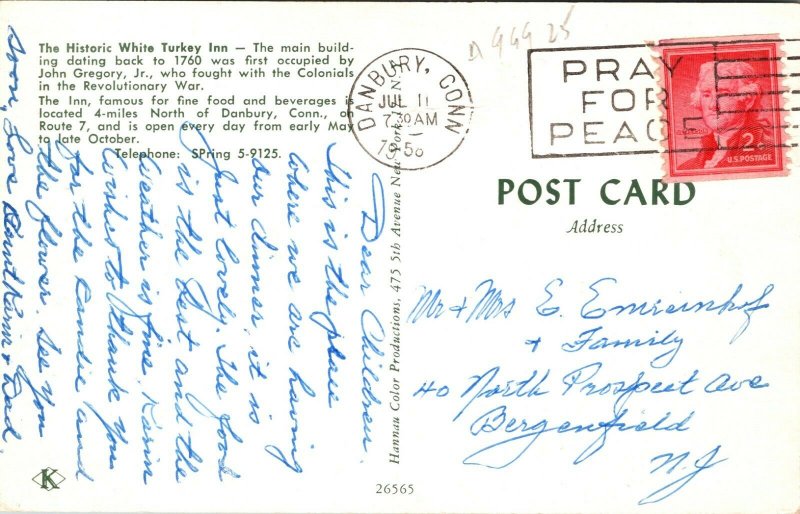 The Historic White Turkey Inn — The main build-
ing dating back to 1760 was first occupied by
John Gregory, Jr., who fought with the Colonials
in the Revolutionary War.
The Inn, famous for fine food and beverages is
located 4-miles North of Danbury, Conn., on
Route 7, and is open every day from early May
to late October.
Telephone: SPring 5-9125.
Dear Children.
This is the place
where we are having
our dinner, it is
just lovely. The food
is the best and the
weather is fine. Karin
wishes to thank you
for the candie and
the flower. See you
soon, Love Aunt Karin & Dad.
K
Hannau Color Productions, 475 5th Avenue New York 17, N.Y.
26565
DANBURY, CONN
JUL 11
7 30 AM
1958
PRAY
FOR
PEACE
2¢
U.S. POSTAGE
POST CARD
Address
Mr & Mrs E. Emreinhof
& Family
40 North Prospect Ave
Bergenfield
N.J